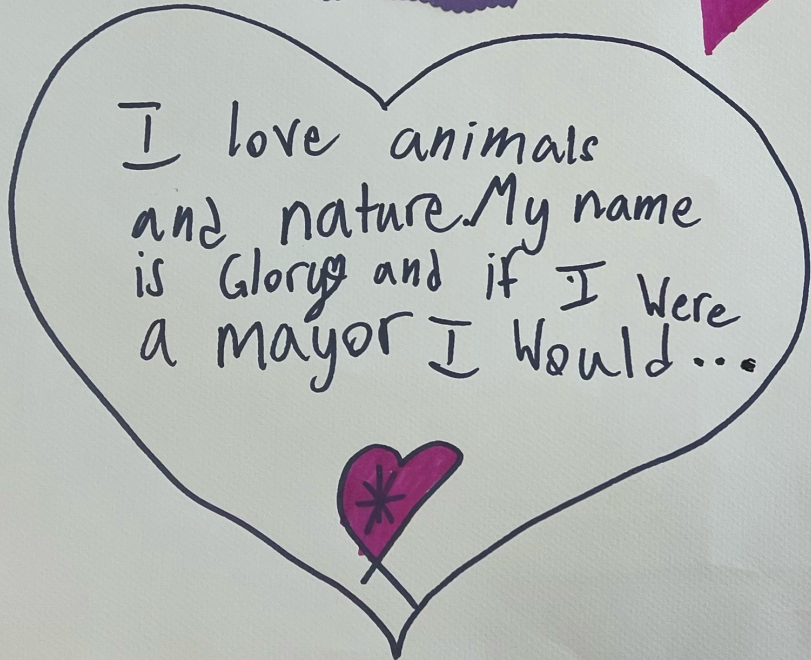 I love animals
and nature. My name
is Glory and if I were
a mayor I Would...